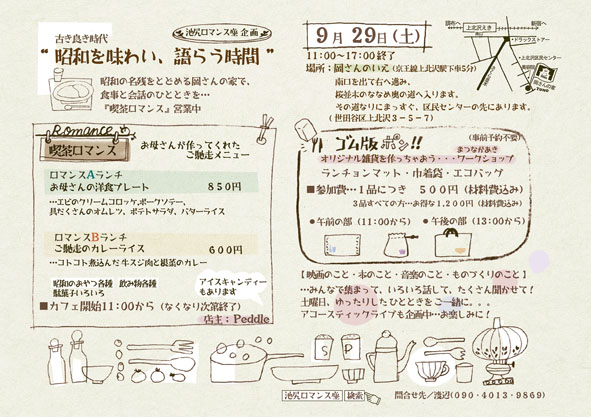 池尻ロマンス座 企画
古き良き時代
“ 昭和を味わい、語らう時間 ”
昭和の名残をとどめる岡さんの家で、
食事と会話のひとときを…
『喫茶ロマンス』営業中
Romance
喫茶ロマンス
お母さんが作ってくれた
ご馳走メニュー
ロマンスAランチ
お母さんの洋食プレート 850円
…エビのクリームコロッケ、ポークソテー、
具だくさんのオムレツ、ポテトサラダ、バターライス
ロマンスBランチ
ご馳走のカレーライス 600円
…コトコト煮込んだ牛スジ肉と根菜のカレー
昭和のおやつ各種 飲み物各種
駄菓子いろいろ
アイスキャンディー
もあります
■カフェ開始11:00から（なくなり次第終了）
店主：Peddle
9月29日（土）
11:00〜17:00終了
場所：岡さんのいえ（京王線上北沢駅下車5分）
南口を出て右へ進み、
桜並木のななめ奥の道へ入ります。
その道なりにまっすぐ、区民センターの先にあります。
（世田谷区上北沢3−5−7）
調布へ
上北沢えき
新宿へ
南口
ドラックストアー
上北沢区民センター
岡さんの家
TOMO
ゴム版 ポン!!
（事前予約不要）
まつながあき
オリジナル雑貨を作っちゃおう・・・ワークショップ
ランチョンマット・巾着袋・エコバッグ
■参加費…1品につき 500円（材料費込み）
3品すべての方…お得な1,200円（材料費込み）
●午前の部（11:00から） ●午後の部（13:00から）
【映画のこと・本のこと・音楽のこと・ものづくりのこと】
…みんなで集まって、いろいろ話して、たくさん聞かせて！
土曜日、ゆったりしたひとときをご一緒に。。。
アコースティックライブも企画中…お楽しみに！
S
P
池尻ロマンス座 検索
問合せ先／渡辺（090・4013・9869）